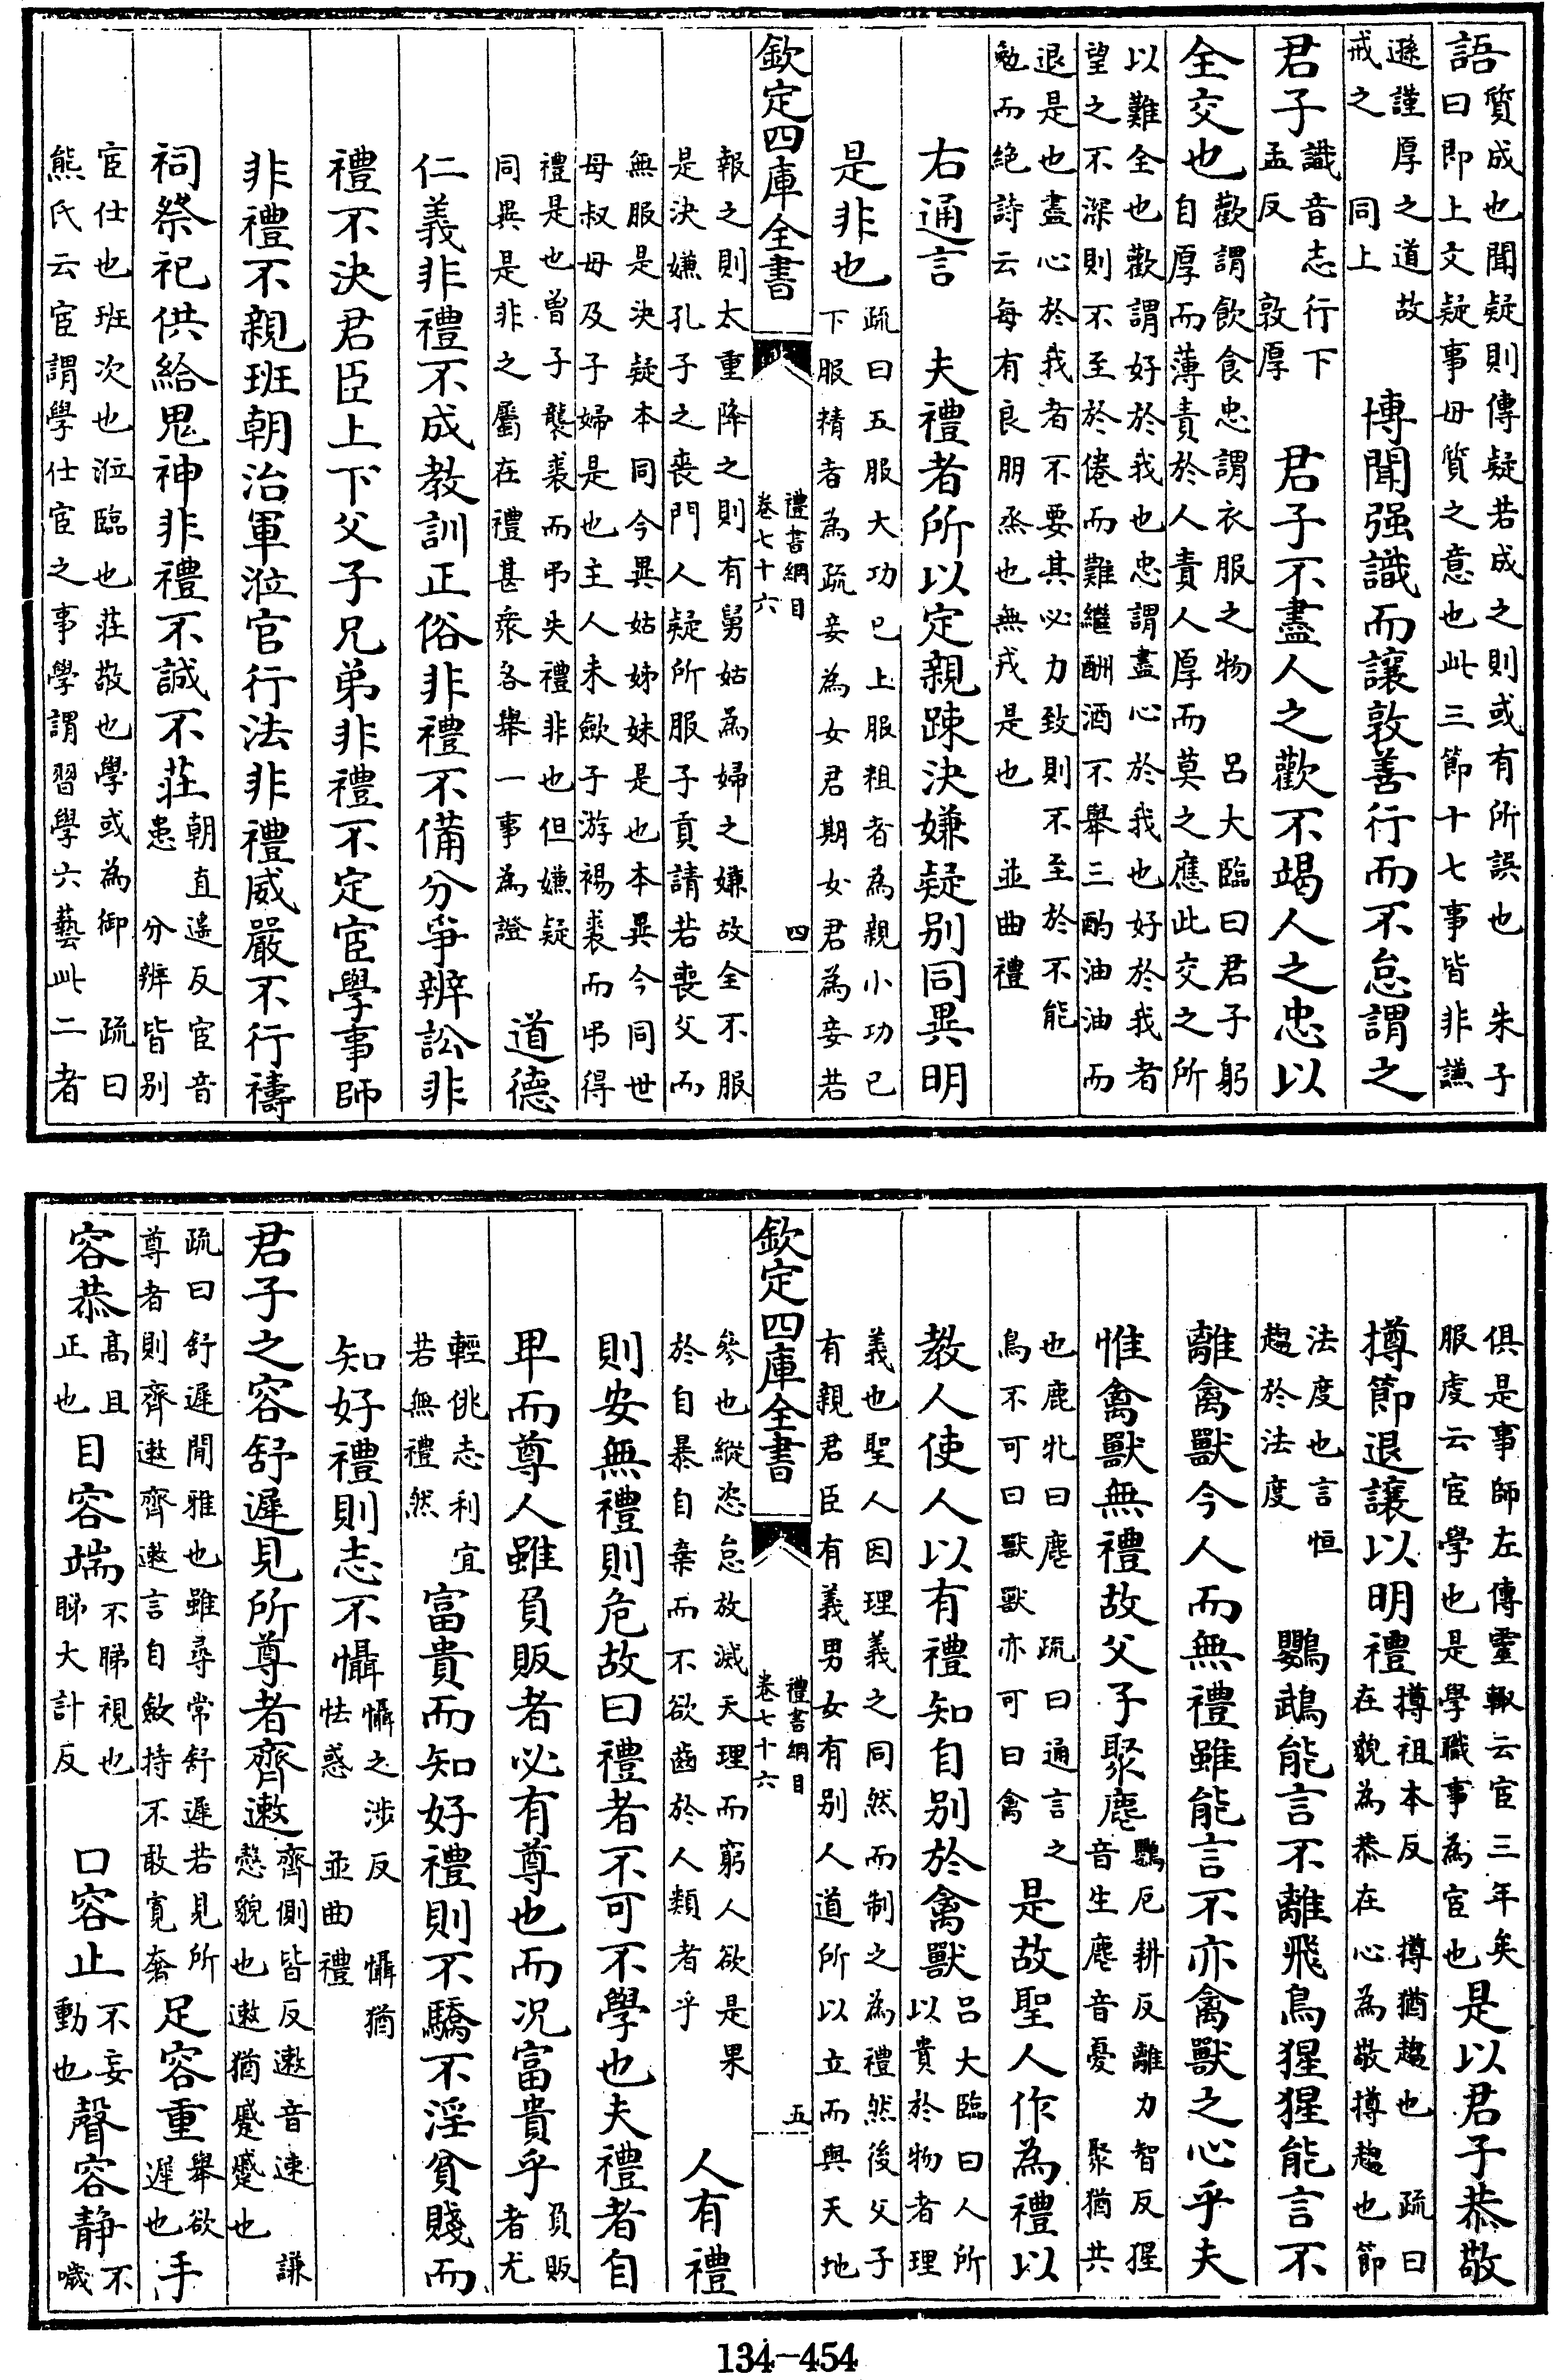 語質成也聞疑則傳疑若成之則或有所誤也 朱子
曰即上文疑事毋質之意也此三節十七事皆非謙
遜謹厚之道故
戒之 同上
博聞强識而讓敦善行而不怠謂之
君子識音志行下
孟反 敦厚
君子不盡人之歡不竭人之忠以
全交也歡謂飲食忠謂衣服之物 呂大臨曰君子躬
自厚而薄責於人責人厚而莫之應此交之所
以難全也歡謂好於我也忠謂盡心於我也好於我者
望之不深則不至於倦而難繼酬酒不舉三酌油油而
退是也盡心於我者不要其必力致則不至於不能
勉而絶詩云每有良朋烝也無戎是也 並曲禮
右通言 夫禮者所以定親踈決嫌疑别同異明
是非也疏曰五服大功已上服粗者為親小功已
下服精者為疏妾為女君期女君為妾若
欽定四庫全書 禮書綱目 卷七十六 四
報之則太重降之則有舅姑為婦之嫌故全不服
是決嫌孔子之喪門人疑所服子貢請若喪父而
無服是決疑本同今異姑姊妹是也本異今同世
母叔母及子婦是也主人未斂子游裼裘而弔得
禮是也曽子襲裘而弔失禮非也但嫌疑
同異是非之屬在禮甚衆各舉一事為證
道德
仁義非禮不成教訓正俗非禮不備分爭辨訟非
禮不決君臣上下父子兄弟非禮不定宦學事師
非禮不親班朝治軍涖官行法非禮威嚴不行禱
祠祭祀供給鬼神非禮不誠不莊朝直遥反宦音
患 分辨皆别
宦仕也班次也涖臨也莊敬也學或為御 疏曰
熊氏云宦謂學仕宦之事學謂習學六藝此二者
俱是事師左傳靈輒云宦三年矣
服䖍云宦學也是學職事為宦也
是以君子恭敬
撙節退讓以明禮撙祖本反 撙猶趨也 疏曰
在貌為恭在心為敬撙趨也節
法度也言恒
趨於法度
鸚鵡能言不離飛鳥猩猩能言不
離禽獸今人而無禮雖能言不亦禽獸之心乎夫
惟禽獸無禮故父子聚麀鸚厄耕反離力智反猩
音生麀音憂 聚猶共
也鹿牝曰麀 疏曰通言之
鳥不可曰獸獸亦可曰禽
是故聖人作為禮以
教人使人以有禮知自别於禽獸呂大臨曰人所
以貴於物者理
義也聖人因理義之同然而制之為禮然後父子
有親君臣有義男女有别人道所以立而與天地
欽定四庫全書 禮書綱目 卷七十六 五
參也縱恣怠放滅天理而窮人欲是果
於自暴自棄而不欲齒於人類者乎
人有禮
則安無禮則危故曰禮者不可不學也夫禮者自
卑而尊人雖負販者必有尊也而况富貴乎負販
者尤
輕佻志利宜
若無禮然
富貴而知好禮則不驕不淫貧賤而
知好禮則志不懾懾之涉反 懾猶
怯惑 並曲禮
君子之容舒遲見所尊者齊遫齊側皆反遫音速 謙
慤貌也遫猶蹙蹙也
疏曰舒遲閒雅也雖尋常舒遲若見所
尊者則齊遫齊遫言自斂持不敢寛奢
足容重舉欲
遲也
手
容恭高且
正也
目容端不睇視也
睇大計反
口容止不妄
動也
聲容静不
噦
134-454